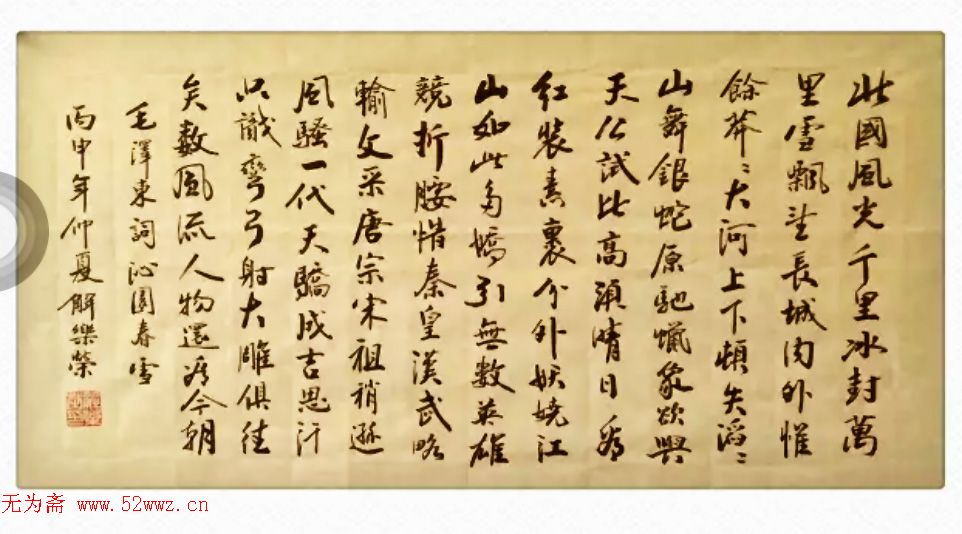 北國風光千里冰封萬
里雪飄望長城内外惟
餘莽〻大河上下頓失滔〻
山舞銀蛇原馳蠟象欲與
天公試比高須晴日看
红裝素裹分外妖嬈江
山如此多嬌引無數英雄
競折腰惜秦皇漢武略
輸文采唐宗宋祖稍遜
風騷一代天驕成吉思汗
只識彎弓射大雕俱往
矣數風流人物還看今朝
毛澤東詞沁園春雪
丙申年仲夏解樂榮
无为斋 www.52wwz.cn